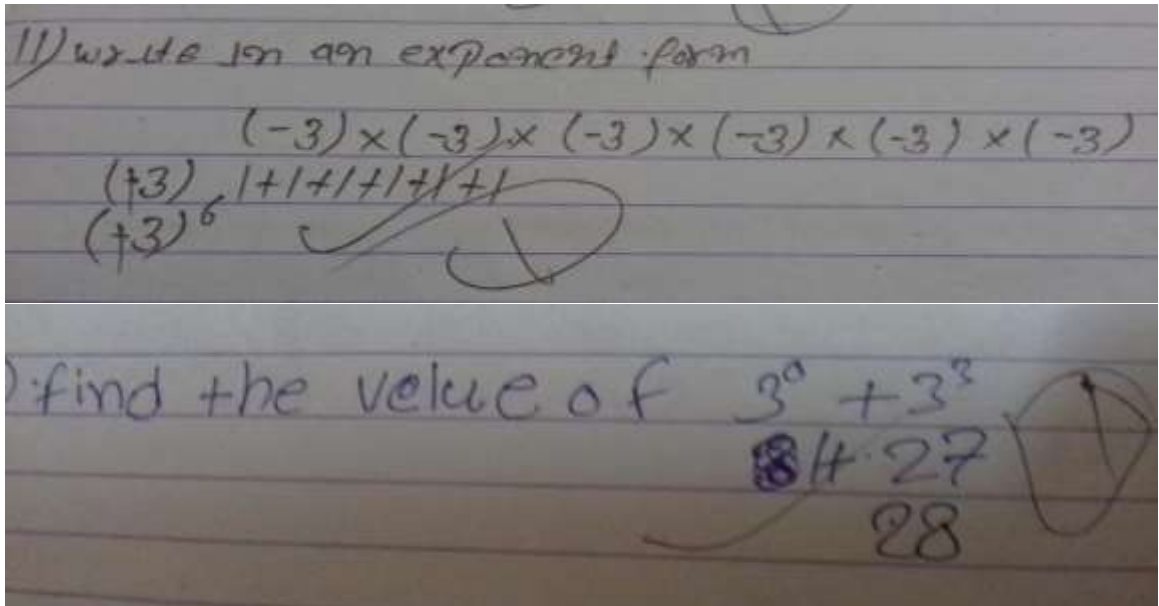 11) write in an exponent form
(-3) × (-3) × (-3) × (-3) × (-3) × (-3)
(+3) 1+1+1+1+1+1
(+3)⁶
) find the velue of 3⁰ + 3³
1+ 27
28